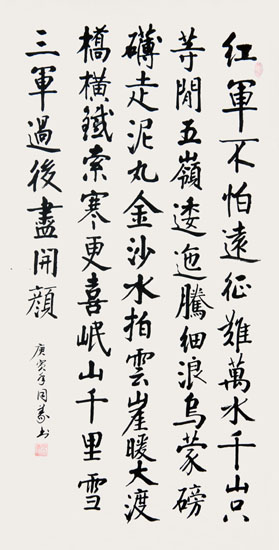 紅軍不怕遠征難萬水千山只
等閒五嶺逶迤騰細浪烏蒙磅
礴走泥丸金沙水拍雲崖暖大渡
橋橫鐵索寒更喜岷山千里雪
三軍過後盡開顏
庚寅年